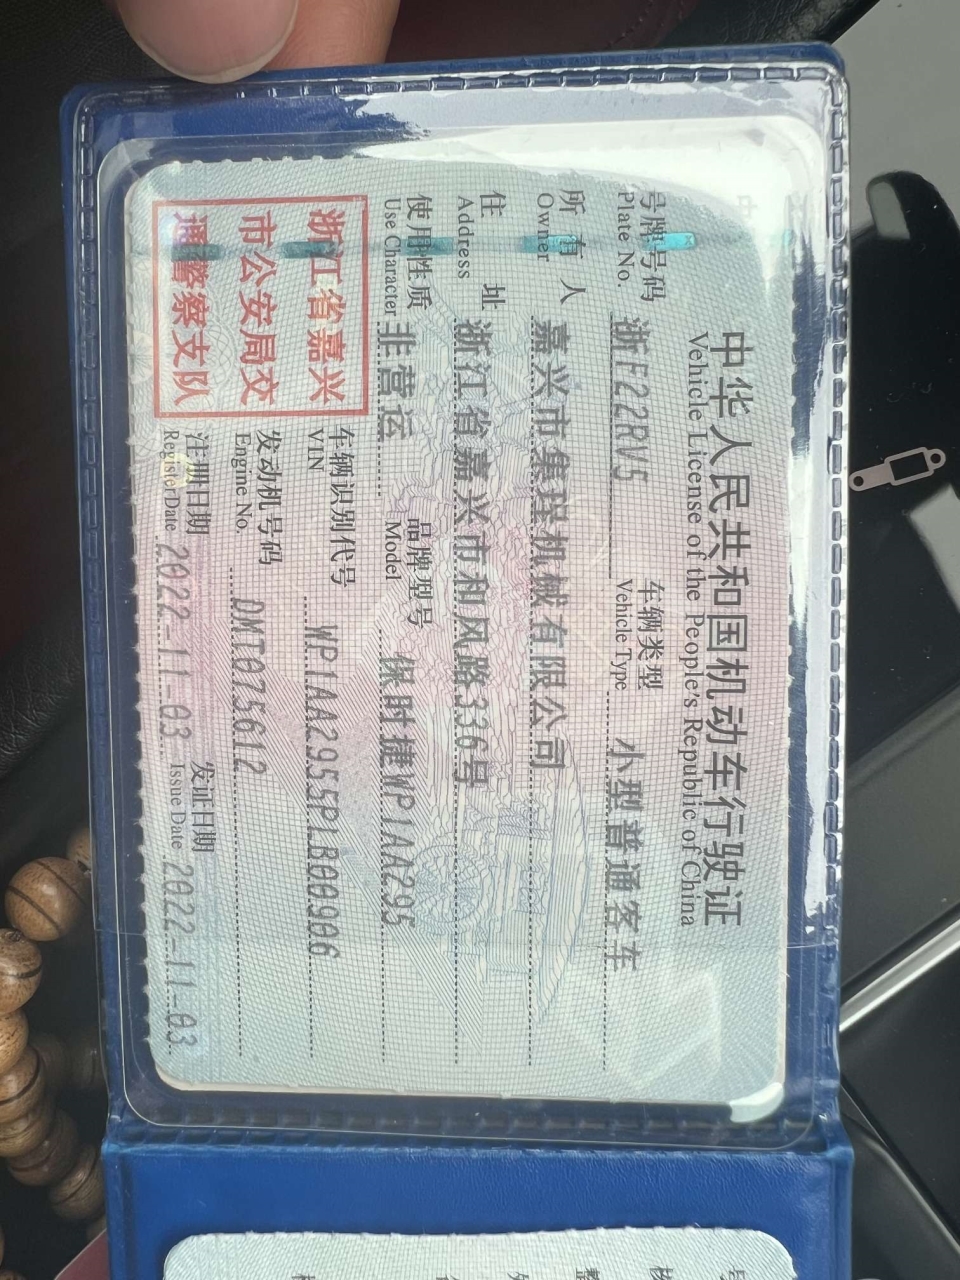 中华人民共和国机动车行驶证
Vehicle License of the People's Republic of China
号牌号码 浙F22RV5 车辆类型 小型普通客车
Plate No. Vehicle Type
所有人 嘉兴市集珵机械有限公司
Owner
住址 浙江省嘉兴市和风路336号
Address
使用性质 非营运 品牌型号 保时捷WP1AA295
Use Character Model
浙江省嘉兴
市公安局交
通警察支队
车辆识别代号 WP1AA2955PLB00906
VIN
发动机号码 DMT075612
Engine No.
注册日期 2022-11-03 发证日期 2022-11-03
Register Date Issue Date